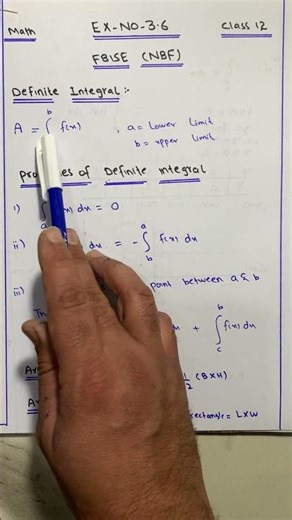 Math EX-NO-3.6 Class 12
FBISE (NBF)
Definite Integral :-
A = ∫ b f(x) , a = Lower Limit
b = upper Limit
of Definite integral
i) f(x) dx = 0
ii) a dx = - ∫ₐᵇ f(x) dx
iii) point between a & b
Th + ∫ f(x) dx b c
1/2 (B×H)
rectangle = L×W